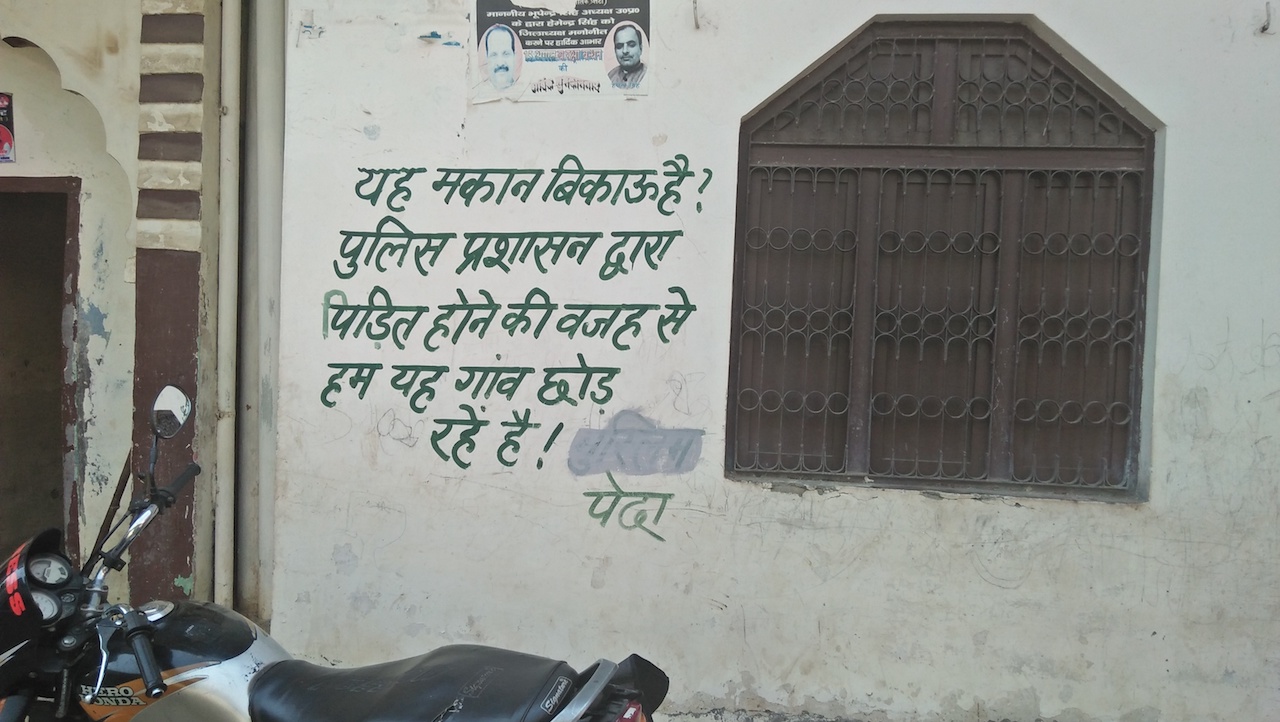 माननीय भूपेन्द्र सिंह अध्यक्ष उ०प्र०
के द्वारा हेमेन्द्र सिंह को
जिलाध्यक्ष मनोनीत
करने पर हार्दिक आभार
की
हार्दिक शुभकामनाएं
यह मकान बिकाऊ है?
पुलिस प्रशासन द्वारा
पिड़ित होने की वजह से
हम यह गांव छोड़
रहें है!
पेदा
HERO
HONDA